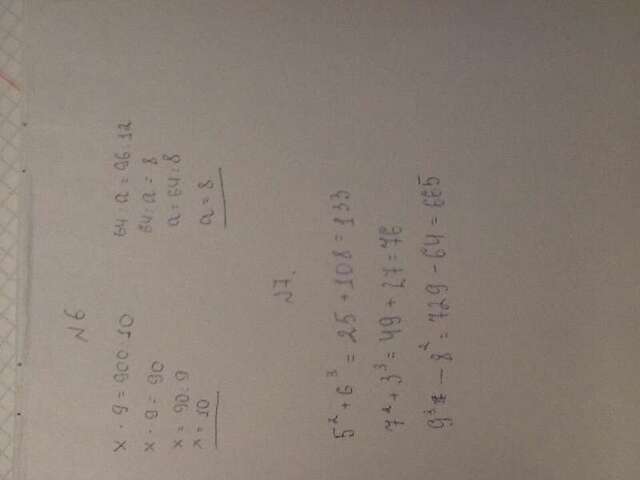 N6
x · 9 = 900 : 10
x · 9 = 90
x = 90 : 9
x = 10
64 : a = 96 : 12
64 : a = 8
a = 64 : 8
a = 8
N7.
5² + 6³ = 25 + 108 = 133
7² + 3³ = 49 + 27 = 76
9³ - 8² = 729 - 64 = 665